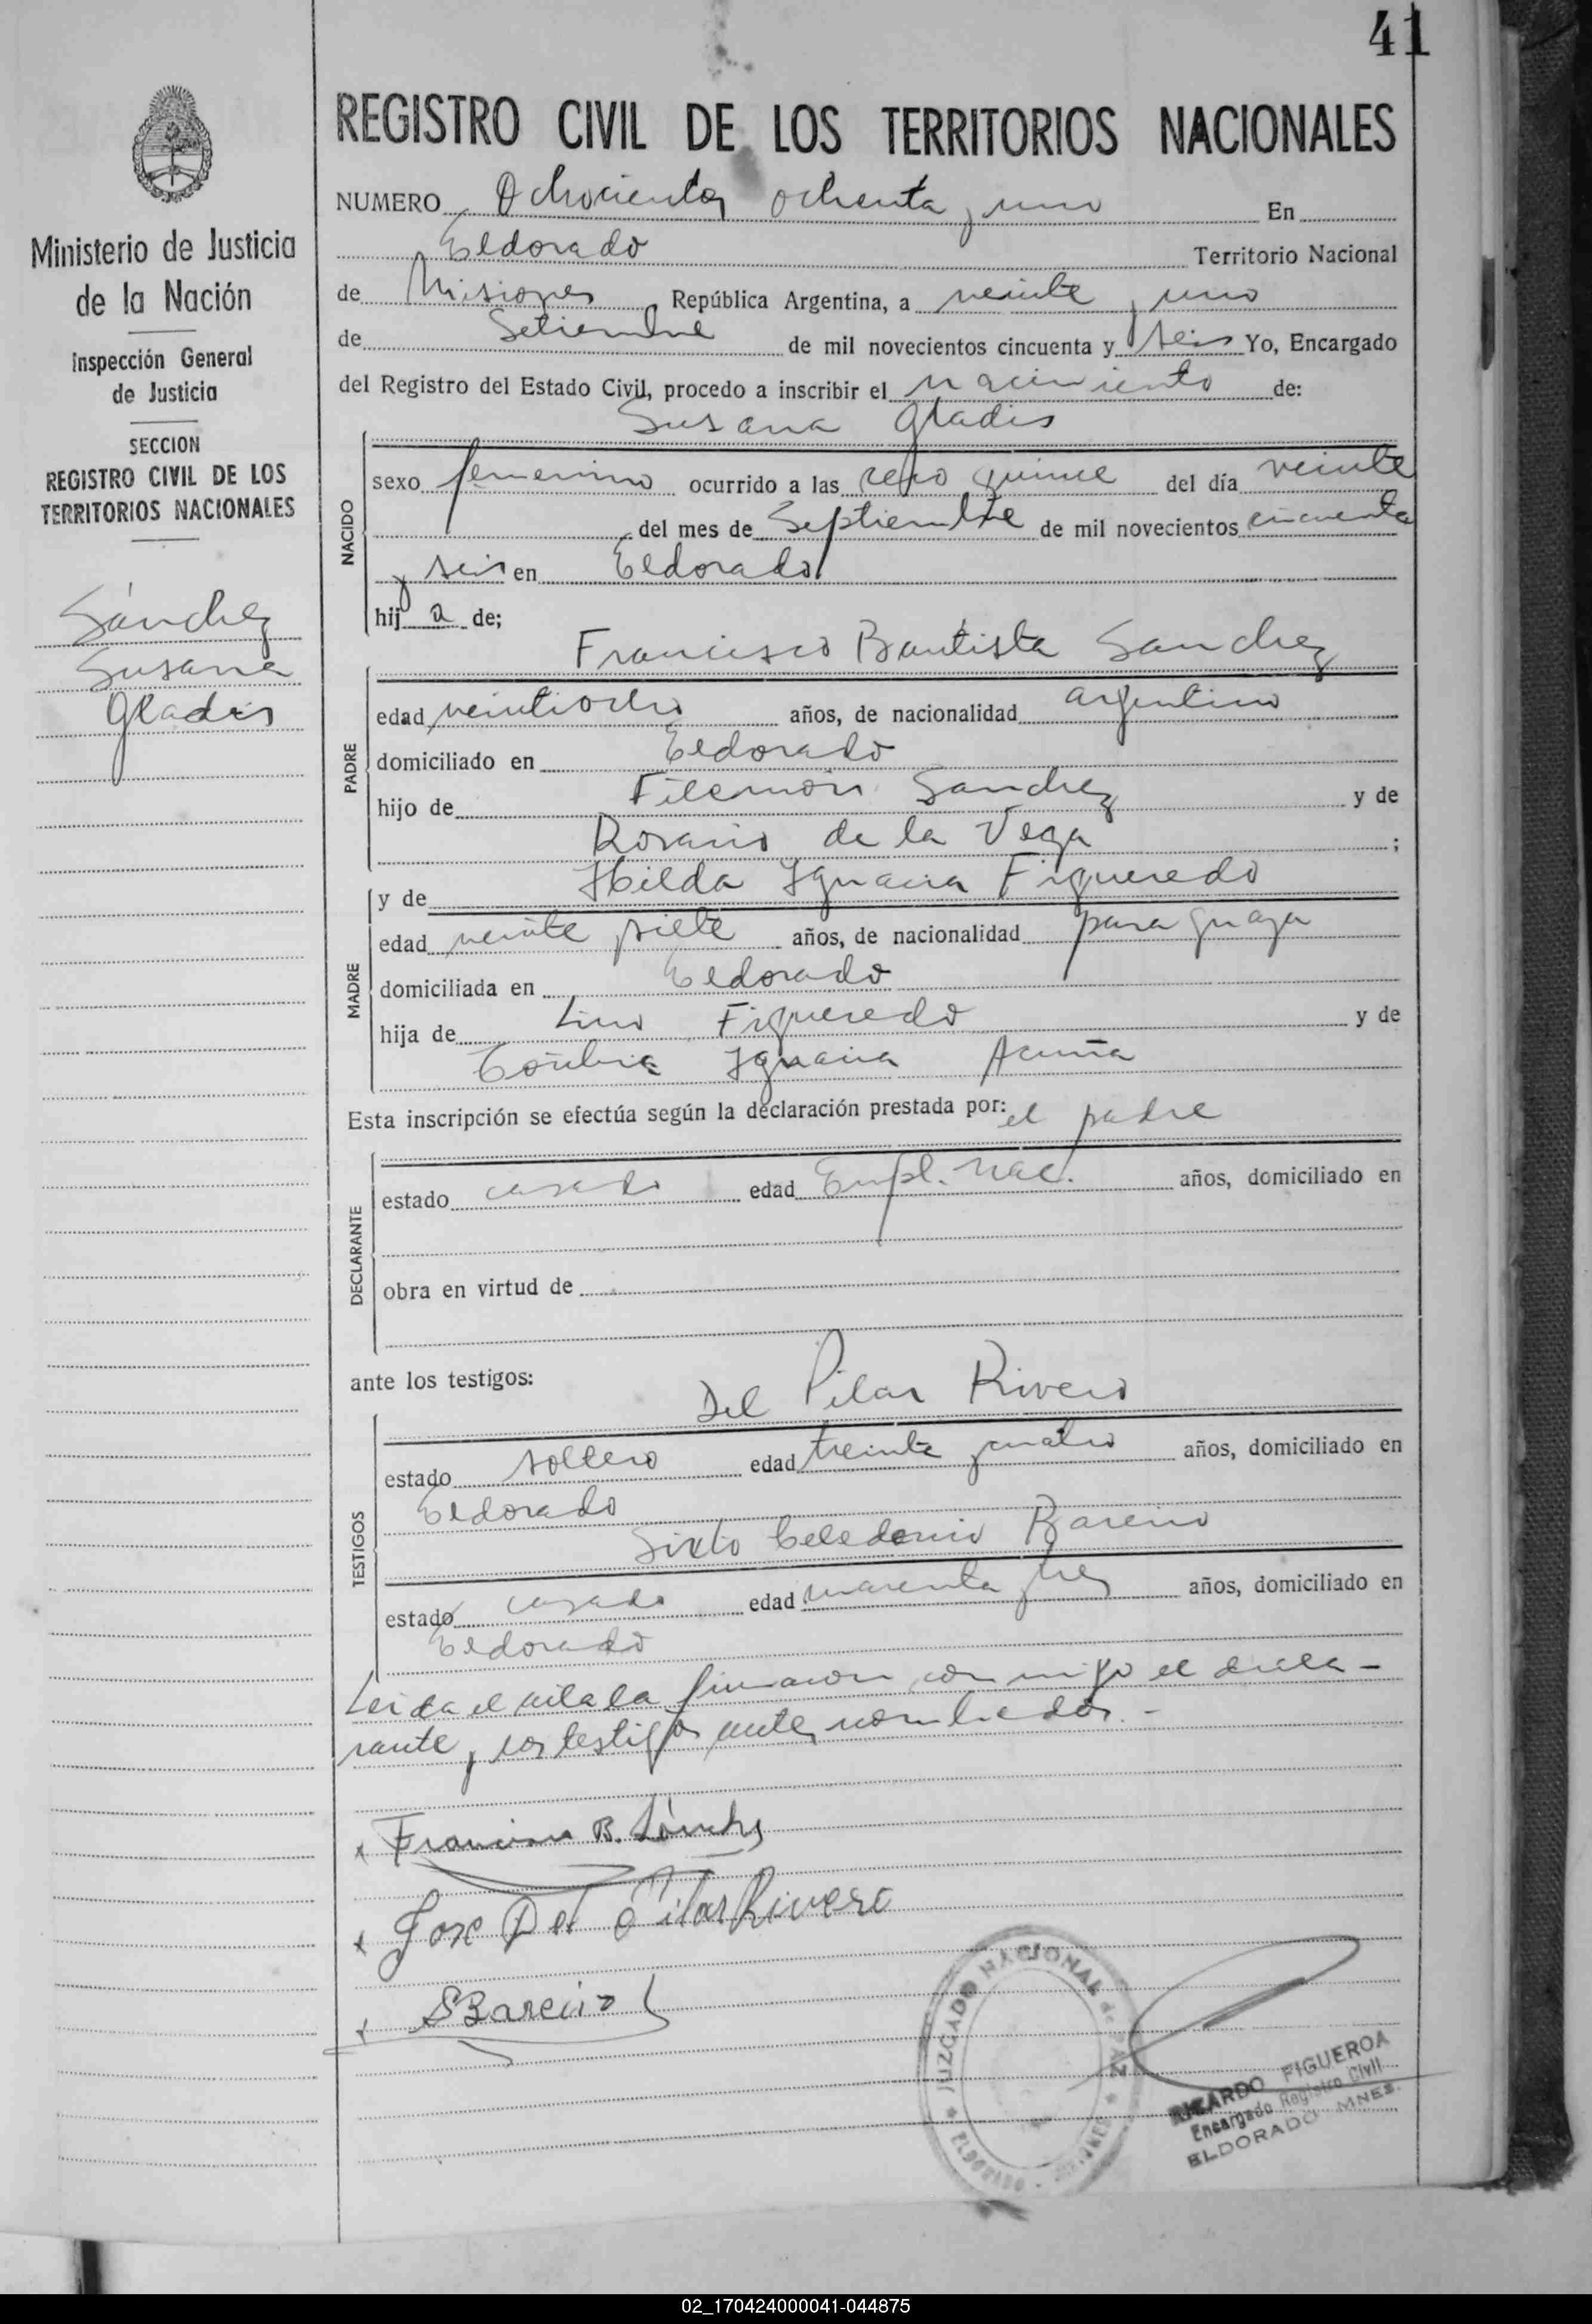 41
REGISTRO CIVIL DE LOS TERRITORIOS NACIONALES
Ministerio de Justicia
de la Nación
Inspección General
de Justicia
SECCION
REGISTRO CIVIL DE LOS
TERRITORIOS NACIONALES
Sánchez
Susana
Gladis
NUMERO Ochocientos ochenta y uno En
Eldorado Territorio Nacional
de Misiones República Argentina, a veinte y uno
de Setiembre de mil novecientos cincuenta y seis Yo, Encargado
del Registro del Estado Civil, procedo a inscribir el nacimiento de:
Susana Gladis
NACIDO
sexo femenino ocurrido a las cero quince del día veinte
del mes de Septiembre de mil novecientos cincuenta
y seis en Eldorado
hij a de;
Francisco Bautista Sanchez
PADRE
edad veintiocho años, de nacionalidad argentino
domiciliado en Eldorado
hijo de Filemón Sanchez y de
Rosario de la Vega ;
MADRE
y de Hilda Ignacia Figueredo
edad veinte y siete años, de nacionalidad paraguaya
domiciliada en Eldorado
hija de Lino Figueredo y de
Ignacia Acuña
Esta inscripción se efectúa según la declaración prestada por: el padre
DECLARANTE
estado casado edad Empl. Nac. años, domiciliado en
obra en virtud de
ante los testigos:
Del Pilar Rivero
TESTIGOS
estado soltero edad treinta y cuatro años, domiciliado en
Eldorado
Sixto Celedonio Bareiro
estado casado edad cuarenta y tres años, domiciliado en
Eldorado
Leida el acta la firmaron conmigo el decla-
rante y los testigos antes nombrados.-
x Francisco B. Sánchez
x Jose Del Pilar Rivero
x SBareiro
JUZGADO NACIONAL de PAZ
ELDORADO - MNES
RICARDO FIGUEROA
Encargado Registro Civil
ELDORADO MNES.
02_170424000041-044875